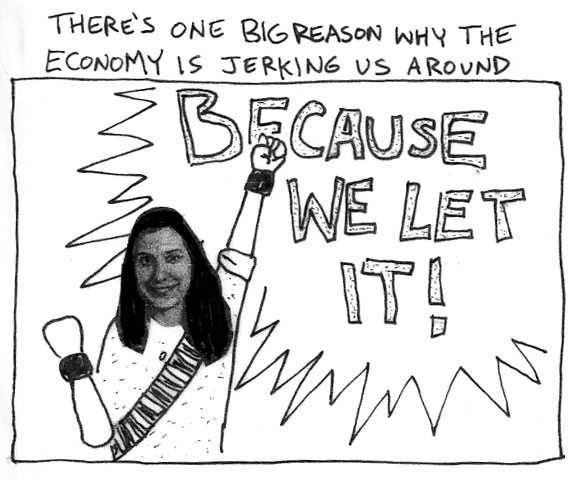 THERE'S ONE BIG REASON WHY THE
ECONOMY IS JERKING US AROUND
BECAUSE
WE LET
IT!